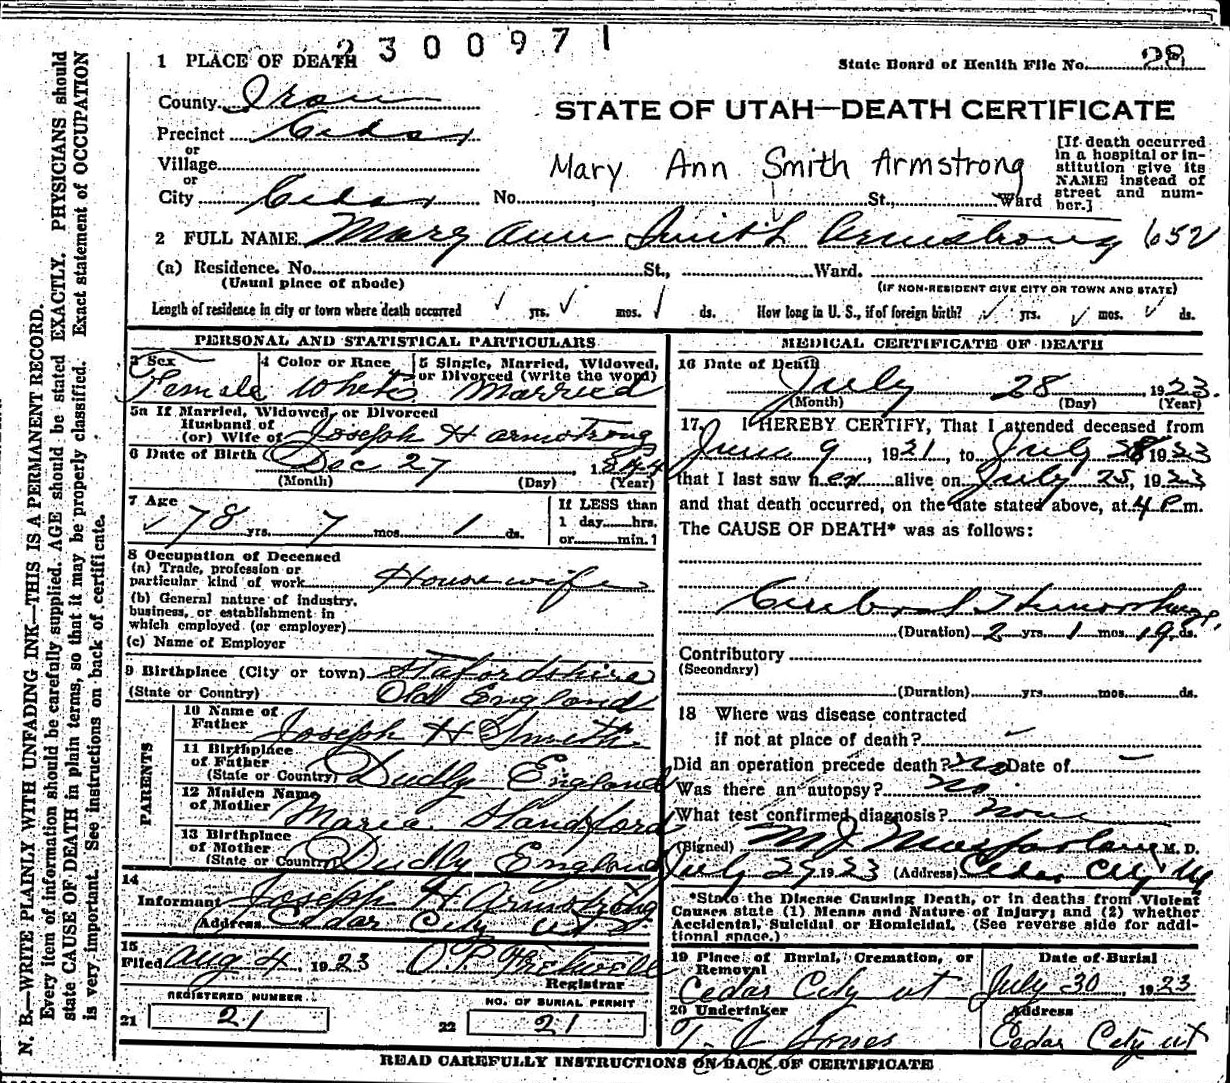 2300971
1 PLACE OF DEATH
State Board of Health File No. 28
County Iron
STATE OF UTAH—DEATH CERTIFICATE
Precinct Cedar
or
Village
or
City Cedar
Mary Ann Smith Armstrong
[If death occurred
in a hospital or in-
stitution give its
NAME instead of
street and num-
ber.]
No. St., Ward
2 FULL NAME Mary Ann Smith Armstrong 652
(a) Residence. No. St., Ward.
(Usual place of abode)
(IF NON-RESIDENT GIVE CITY OR TOWN AND STATE)
Length of residence in city or town where death occurred yrs. mos. ds. How long in U. S., if of foreign birth? yrs. mos. ds.
PERSONAL AND STATISTICAL PARTICULARS
3 Sex 4 Color or Race 5 Single, Married, Widowed,
or Divorced (write the word)
Female White Married
5a If Married, Widowed, or Divorced
Husband of
(or) Wife of Joseph H Armstrong
6 Date of Birth Dec 27, 1844
(Month) (Day) (Year)
7 Age
78 yrs. 7 mos. 1 ds.
If LESS than
1 day hrs.
or min.1
8 Occupation of Deceased
(a) Trade, profession or
particular kind of work Housewife
(b) General nature of industry,
business, or establishment in
which employed (or employer)
(c) Name of Employer
9 Birthplace (City or town) Stafordshire
(State or Country) Old England
PARENTS
10 Name of
Father Joseph H Smith
11 Birthplace
of Father
(State or Country) Dudly England
12 Maiden Name
of Mother Maria Standford
13 Birthplace
of Mother
(State or Country) Dudly England
14
Informant Joseph H Armstrong
Address Cedar City Ut
15
Filed Aug 4, 1923 O.P. Fretwell
Registrar
REGISTERED NUMBER NO. OF BURIAL PERMIT
21 21 22 21
MEDICAL CERTIFICATE OF DEATH
16 Date of Death
July 28, 1923.
(Month) (Day) (Year)
17. I HEREBY CERTIFY, That I attended deceased from
June 9, 1921, to July 28 1923
that I last saw her alive on July 25, 1923
and that death occurred, on the date stated above, at 4 P m.
The CAUSE OF DEATH* was as follows:
Cerebral Hemorrhage
(Duration) 2 yrs. 1 mos. 19 ds.
Contributory
(Secondary)
(Duration) yrs. mos. ds.
18 Where was disease contracted
if not at place of death?
Did an operation precede death? No Date of
Was there an autopsy? No
What test confirmed diagnosis? None
(Signed) M J Macfarlane M. D.
July 29, 1923 (Address) Cedar City Ut
*State the Disease Causing Death, or in deaths from Violent
Causes state (1) Means and Nature of Injury; and (2) whether
Accidental, Suicidal or Homicidal. (See reverse side for addi-
tional space.)
19 Place of Burial, Cremation, or
Removal
Cedar City Ut
Date of Burial
July 30, 1923
20 Undertaker
Jones
Address
Cedar City Ut
READ CAREFULLY INSTRUCTIONS ON BACK OF CERTIFICATE
N. B.—WRITE PLAINLY WITH UNFADING INK—THIS IS A PERMANENT RECORD.
Every item of information should be carefully supplied. AGE should be stated EXACTLY. PHYSICIANS should
state CAUSE OF DEATH in plain terms, so that it may be properly classified. Exact statement of OCCUPATION
is very important. See instructions on back of certificate.